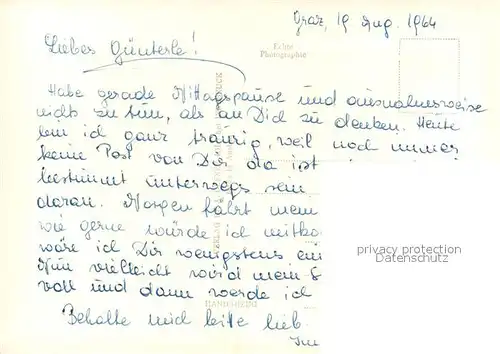 Graz, 19 Aug. 1964
Liebes Günterle!
Echte
Photographie
Habe gerade Mittagspause und ausnahmsweise
nichts zu tun, als an Dich zu denken. Heute
bin ich ganz traurig, weil noch immer
keine Post von Dir da ist
bestimmt unterwegs sein
daran. Morgen fährt mein
wie gerne würde ich mitko
wäre ich Dir wenigstens ein
Nun vielleicht wird mein
voll und dann werde ich
Behalte mich bitte lieb.
privacy protection
Datenschutz